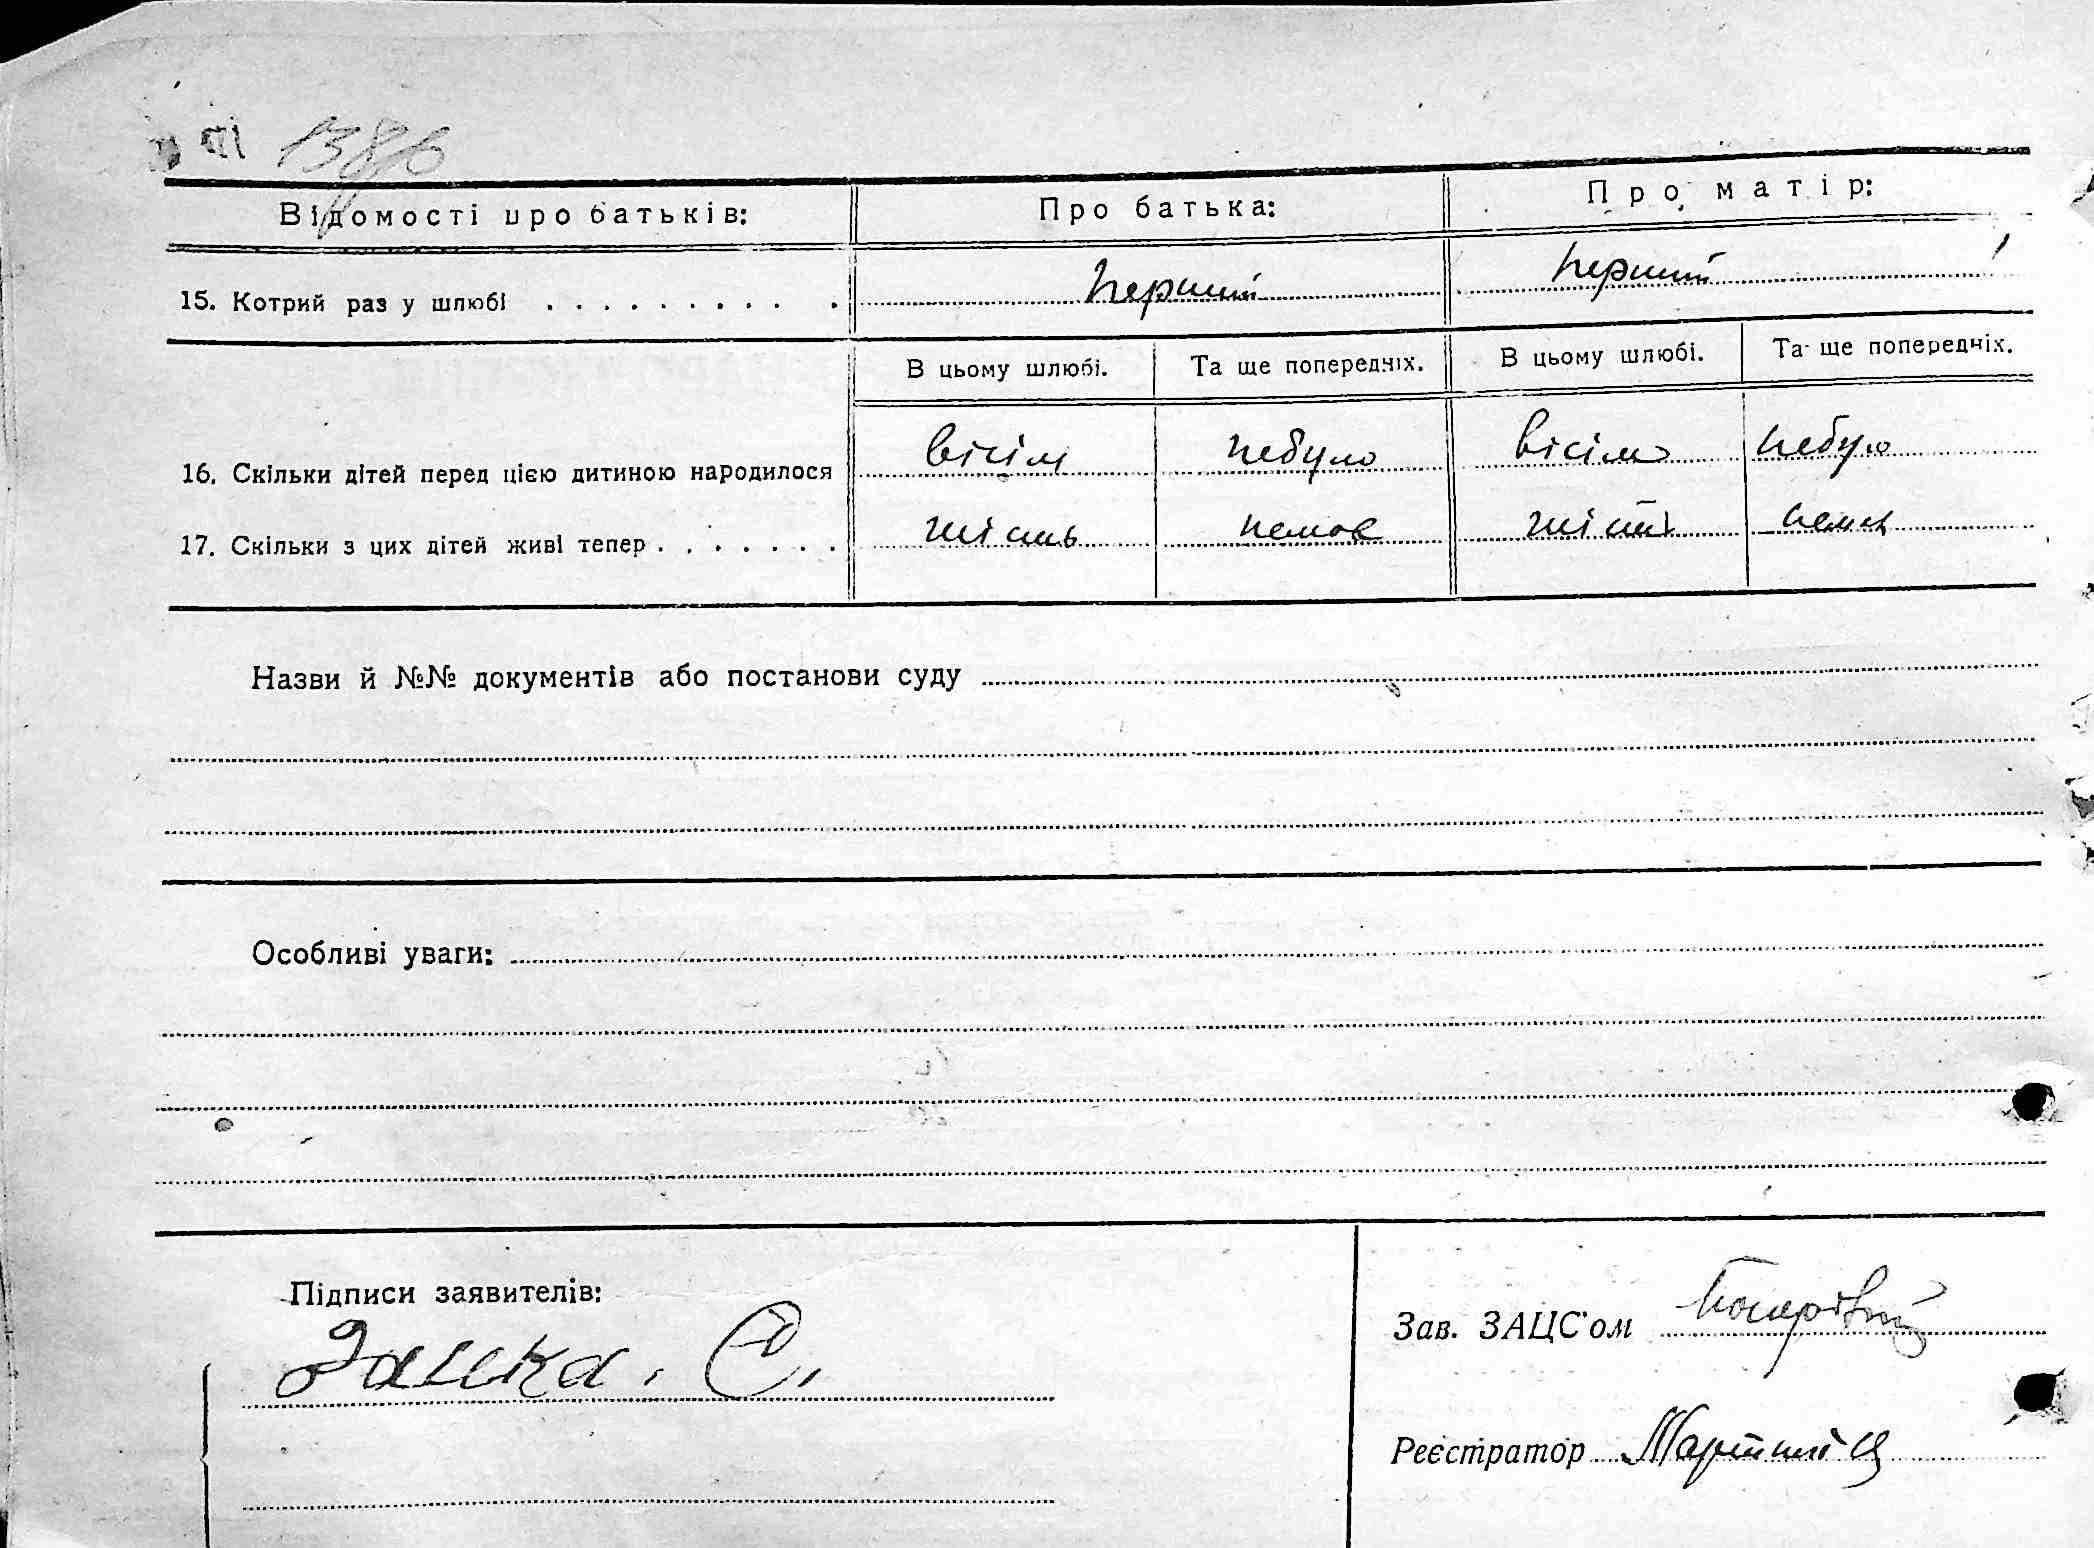 138б
Відомості про батьків: Про батька: Про матір:
15. Котрий раз у шлюбі . . . . . . . . . . перший перший
В цьому шлюбі. Та ще попередніх. В цьому шлюбі. Та ще попередніх.
16. Скільки дітей перед цією дитиною народилося вісім небуло вісім небуло
17. Скільки з цих дітей живі тепер . . . . . . . шість немає шість нема
Назви й №№ документів або постанови суду
Особливі уваги:
Підписи заявителів:
Зав. ЗАЦС'ом
Заика. Є.
Реєстратор